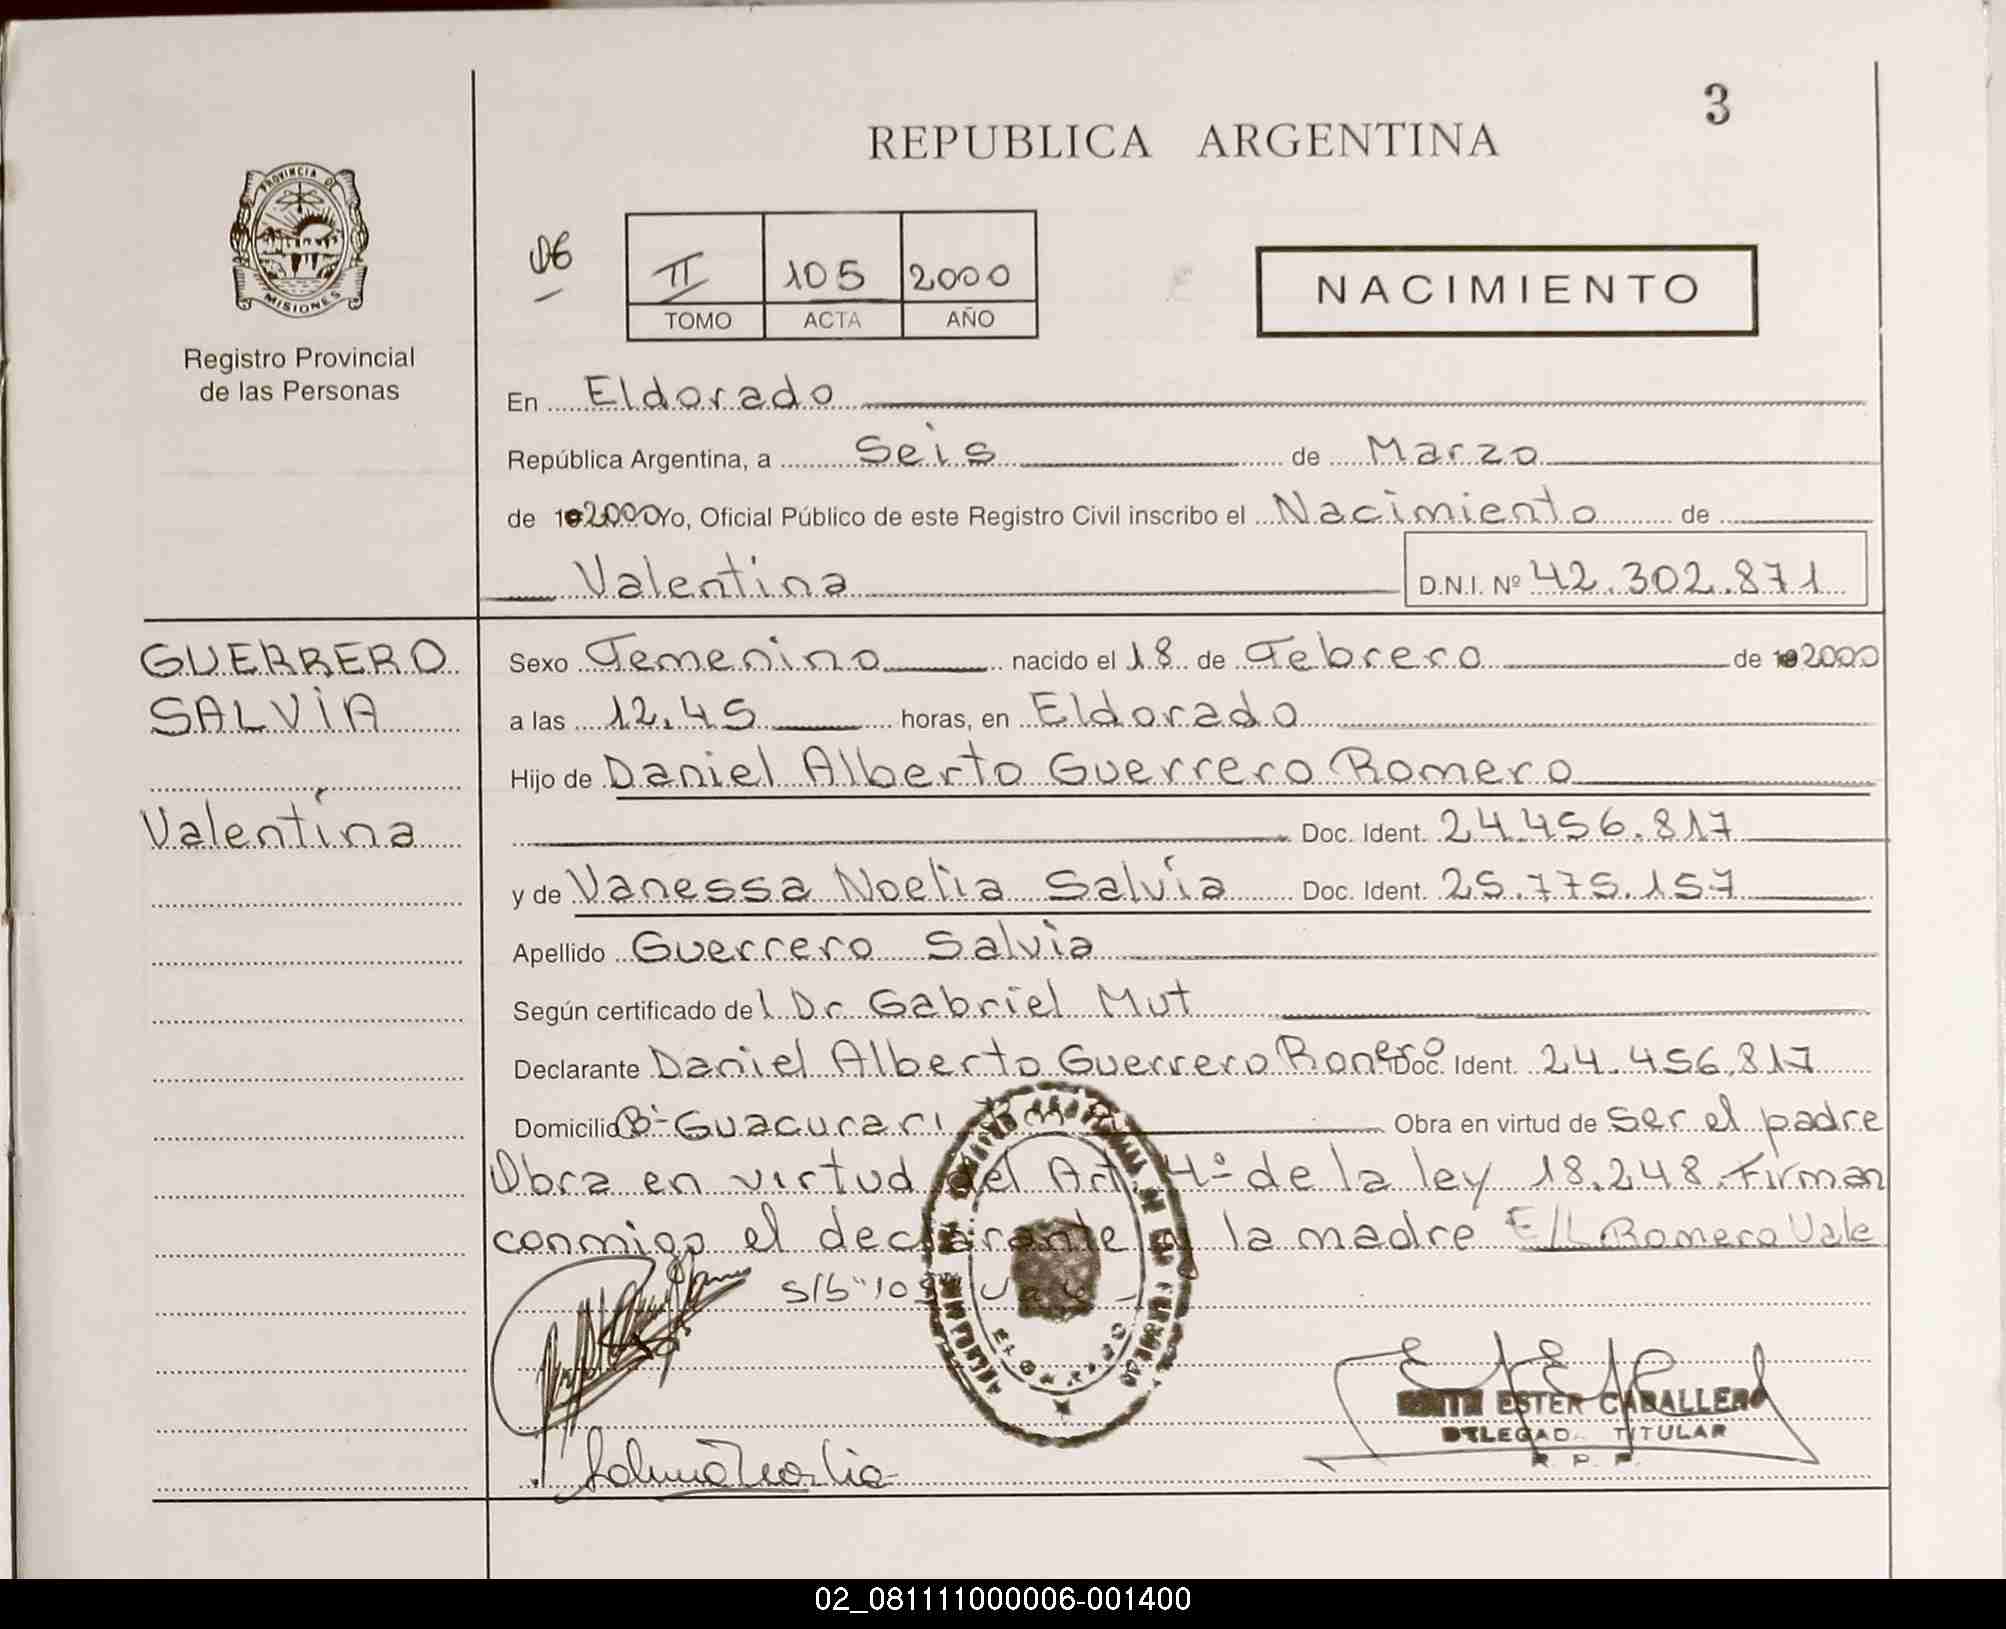 3
REPUBLICA ARGENTINA
PROVINCIA DE
MISIONES
Registro Provincial
de las Personas
06
II 105 2000
TOMO ACTA AÑO
NACIMIENTO
En Eldorado
República Argentina, a Seis de Marzo
de 2000 Yo, Oficial Público de este Registro Civil inscribo el Nacimiento de
Valentina D.N.I. Nº 42.302.871
GUERRERO
SALVIA
Valentína
Sexo Femenino nacido el 18 de Febrero de 2000
a las 12.45 horas, en Eldorado
Hijo de Daniel Alberto Guerrero Romero
Doc. Ident. 24.456.817
y de Vanessa Noelia Salvía Doc. Ident. 25.775.157
Apellido Guerrero Salvia
Según certificado del Dr Gabriel Mut
Declarante Daniel Alberto Guerrero Romero Doc. Ident. 24.456.817
Domicilio Bº Guacurari Obra en virtud de ser el padre
Obra en virtud del Art 4º de la ley 18.248. Firman
conmigo el declarante y la madre E/L Romero Vale
S/b "105" Vale
ELDORADO
ESTER CABALLERO
TITULAR
R. P. P.
02_081111000006-001400